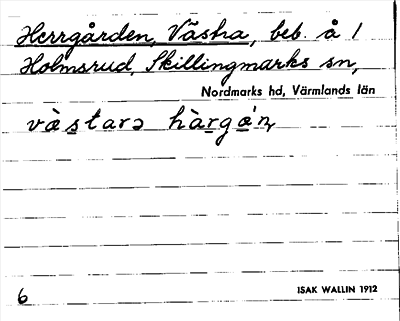 Herrgården, Västra, beb. å 1
Holmsrud, Skillingmarks sn,
Nordmarks hd, Värmlands län
vàstarə hàrgá'n
6
ISAK WALLIN 1912